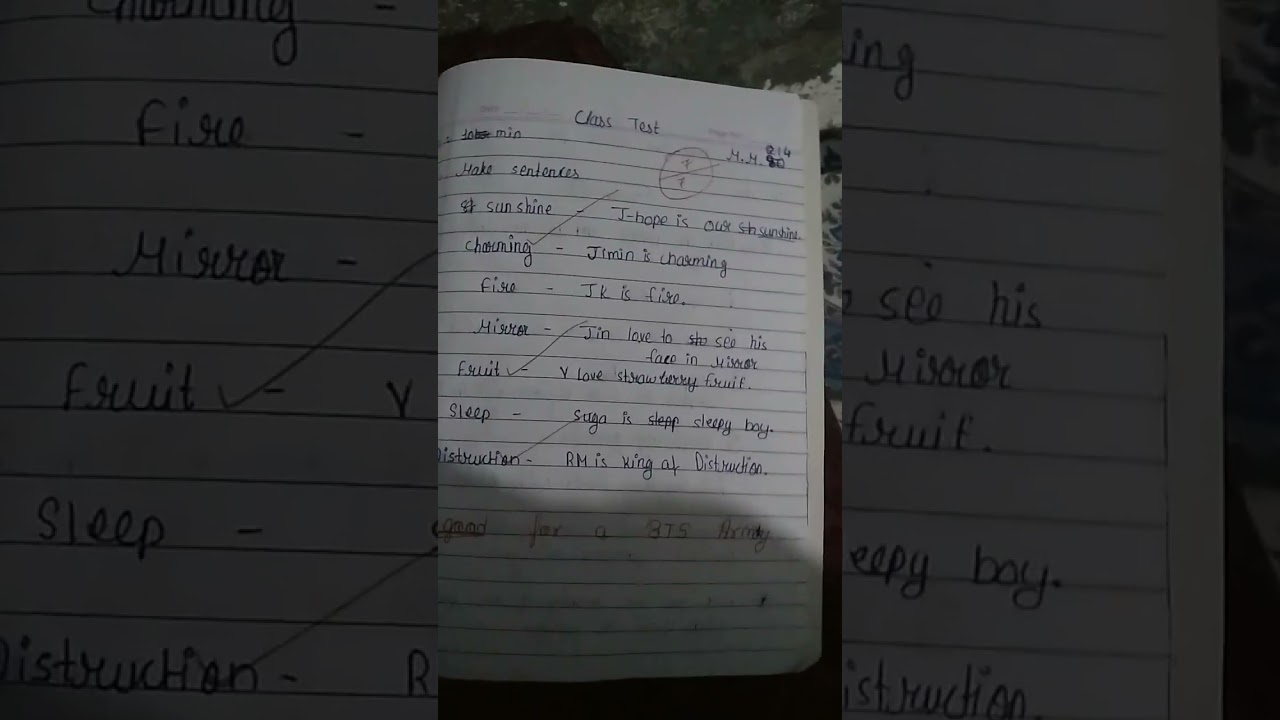 Class Test
min
M.M.
Make sentences
7
7
sunshine - J-hope is our sunshine.
charming - Jimin is charming
fire - JK is fire.
Mirror - Jin love to see his
face in Mirror
fruit - V love strawberry fruit.
Sleep - Suga is sleepy boy.
Distruction - RM is king of Distruction.
good for a BTS Army